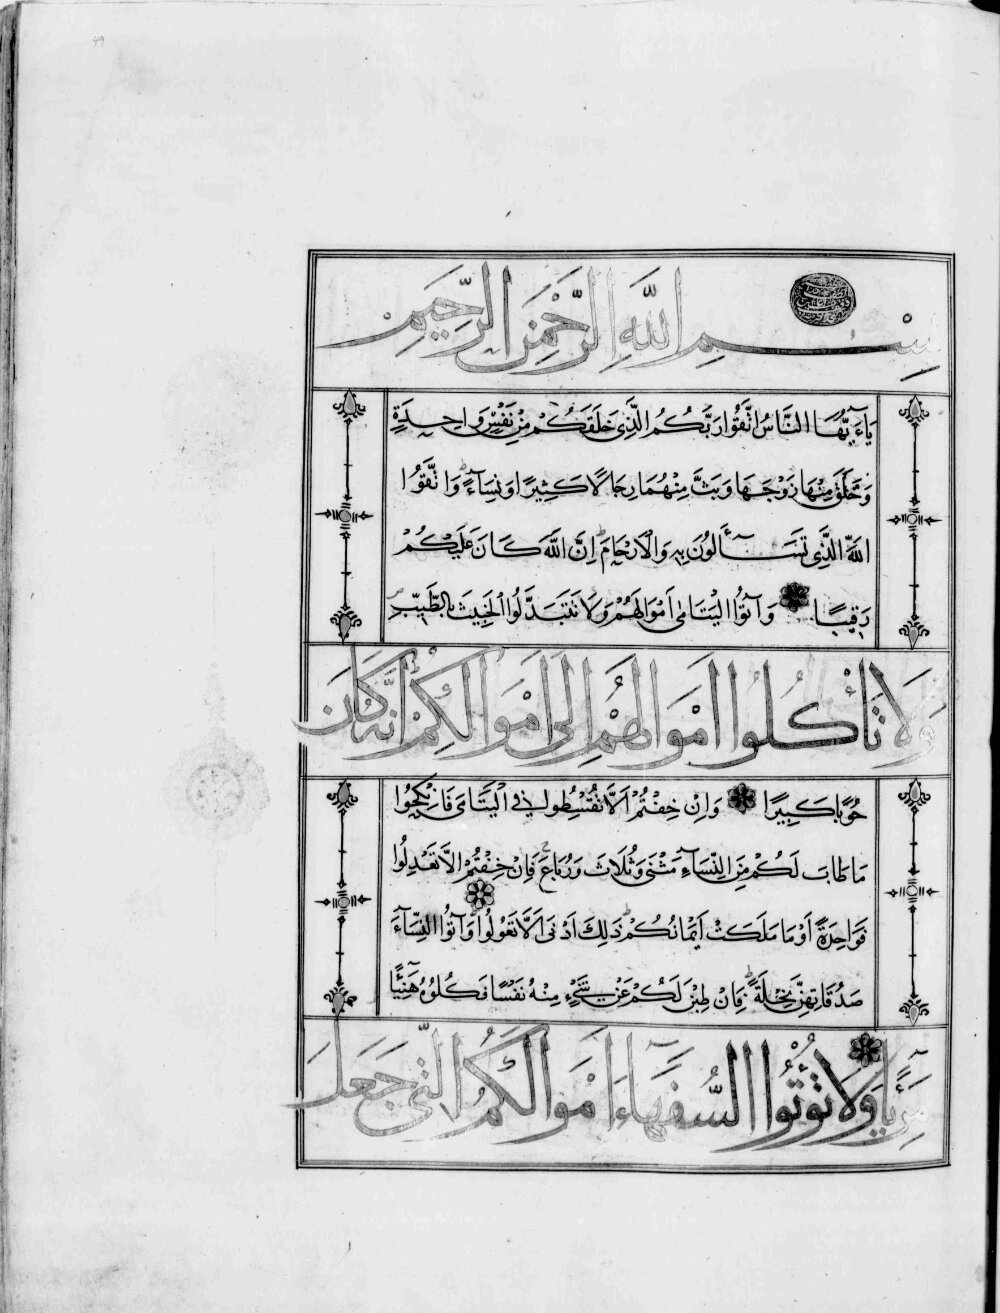 بِسْمِ اللَّهِ الرَّحْمَنِ الرَّحِيمِ
يَاءَيُّهَا النَّاسُ اتَّقُوا رَبَّكُمُ الَّذِي خَلَقَكُمْ مِنْ نَفْسٍ وَاحِدَةٍ
وَخَلَقَ مِنْهَا زَوْجَهَا وَبَثَّ مِنْهُمَا رِجَالًا كَثِيرًا وَنِسَاءً وَاتَّقُوا
اللَّهَ الَّذِي تَسَّاءَلُونَ بِهِ وَالْأَرْحَامَ إِنَّ اللَّهَ كَانَ عَلَيْكُمْ
رَقِيبًا وَآتُوا الْيَتَامَى أَمْوَالَهُمْ وَلَا تَتَبَدَّلُوا الْخَبِيثَ بِالطَّيِّبِ
وَلَا تَأْكُلُوا أَمْوَالَهُمْ إِلَى أَمْوَالِكُمْ إِنَّهُ كَانَ
حُوبًا كَبِيرًا وَإِنْ خِفْتُمْ أَلَّا تُقْسِطُوا فِي الْيَتَامَى فَانْكِحُوا
مَا طَابَ لَكُمْ مِنَ النِّسَاءِ مَثْنَى وَثُلَاثَ وَرُبَاعَ فَإِنْ خِفْتُمْ أَلَّا تَعْدِلُوا
فَوَاحِدَةً أَوْ مَا مَلَكَتْ أَيْمَانُكُمْ ذَلِكَ أَدْنَى أَلَّا تَعُولُوا وَآتُوا النِّسَاءَ
صَدُقَاتِهِنَّ نِحْلَةً فَإِنْ طِبْنَ لَكُمْ عَنْ شَيْءٍ مِنْهُ نَفْسًا فَكُلُوهُ هَنِيئًا
مَرِيئًا وَلَا تُؤْتُوا السُّفَهَاءَ أَمْوَالَكُمُ الَّتِي جَعَلَ